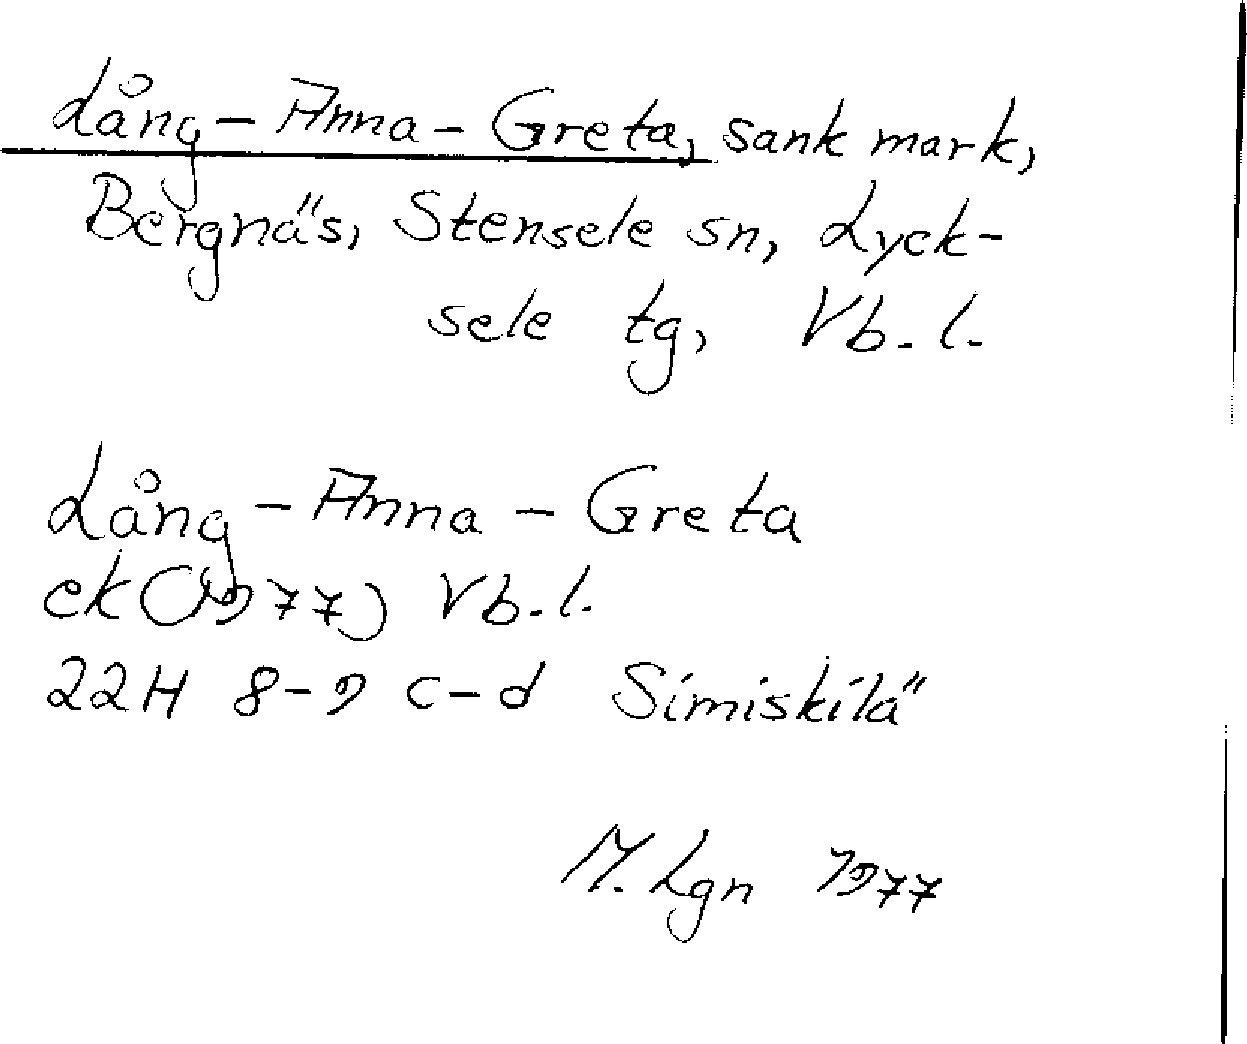 Lång-Anna-Greta, sank mark,
Bergnäs, Stensele sn, Lyck-
sele tg, Vb. l.
Lång-Anna-Greta
ek (1977) Vb. l.
22H 8-9 c-d Simiskilä
M. Lgn 1977